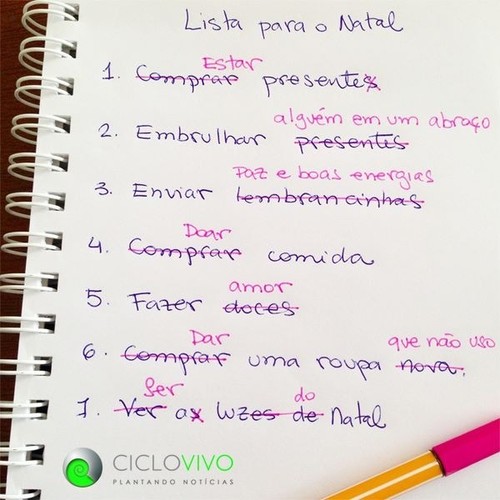 Lista para o Natal
Estar
1. Comprar presentes
alguém em um abraço
2. Embrulhar presentes
Paz e boas energias
3. Enviar lembrancinhas
Doar
4. Comprar comida
amor
5. Fazer doces
Dar que não uso
6. Comprar uma roupa nova.
Ser do
7. Ver as luzes de Natal
CICLOVIVO
PLANTANDO NOTÍCIAS